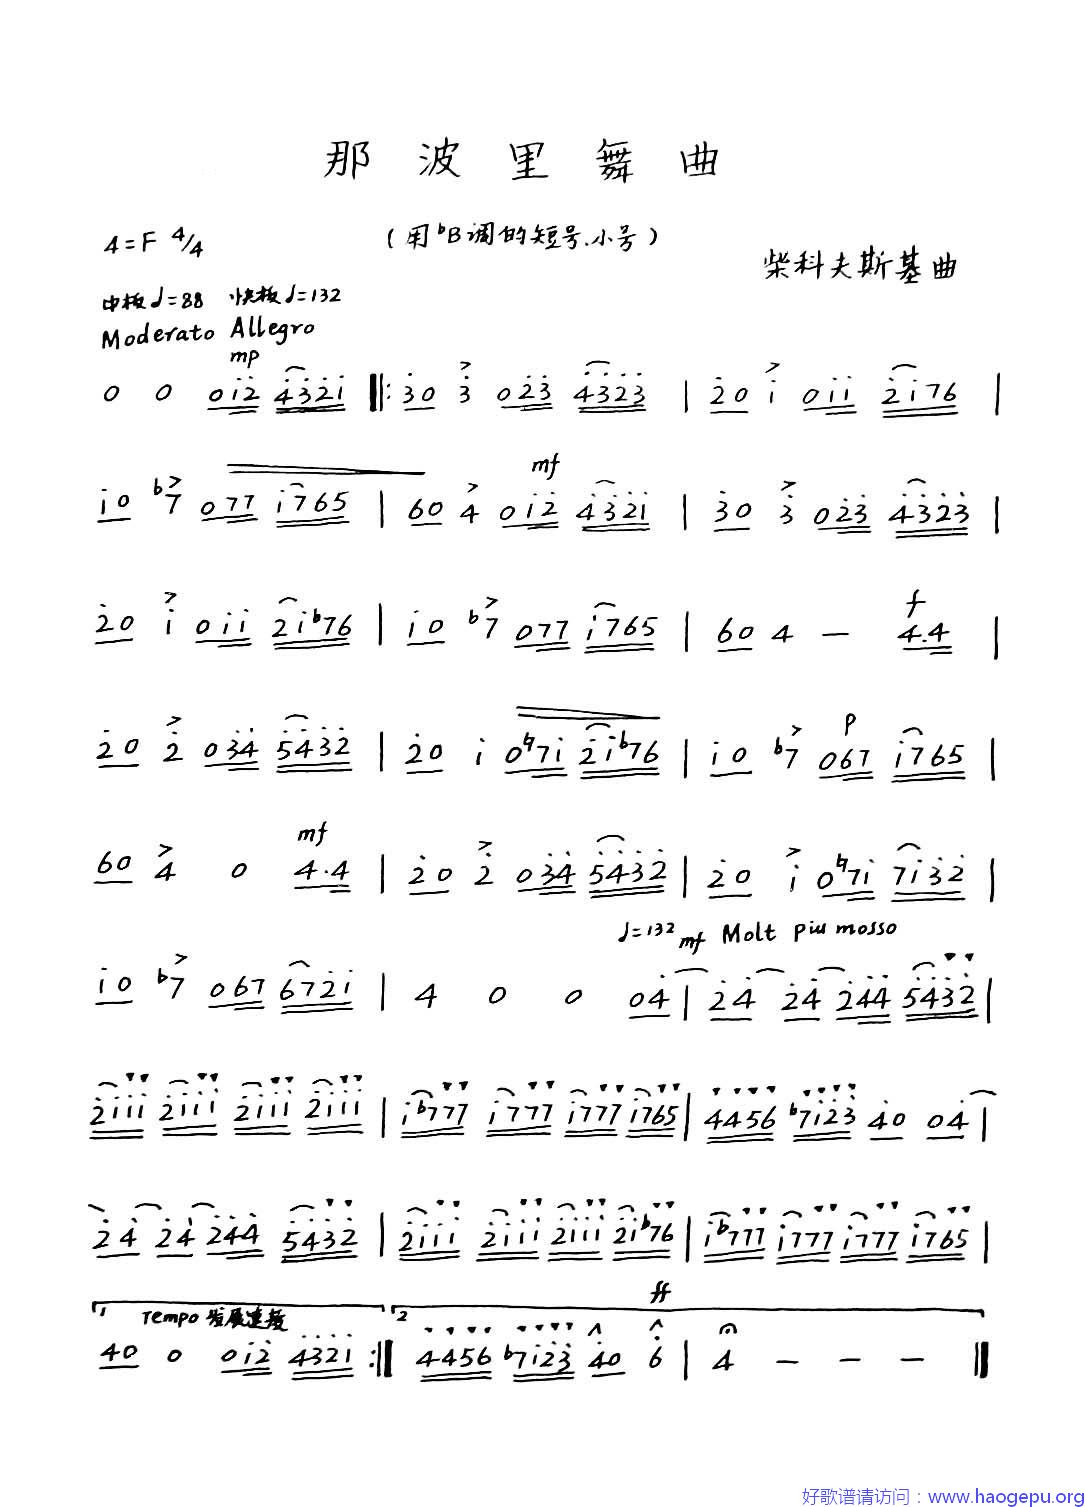 那波里舞曲
4=F 4/4
(用♭B调的短号、小号)
柴科夫斯基曲
中板♩=88 快板♩=132
Moderato Allegro
mp
0 0 0i̇2̇ 4̇3̇2̇i̇ ‖: 3̇0 3̇ 02̇3̇ 4̇3̇2̇3̇ | 2̇0 i̇ 0i̇i̇ 2̇i̇76 |
mf
i̇0 ♭7 077 i̇765 | 60 4 0i̇2̇ 4̇3̇2̇i̇ | 3̇0 3̇ 02̇3̇ 4̇3̇2̇3̇ |
f
2̇0 i̇ 0i̇i̇ 2̇i̇♭76 | i̇0 ♭7 077 i̇765 | 60 4 — 4.4 |
p
2̇0 2̇ 03̇4̇ 5̇4̇3̇2̇ | 2̇0 i̇ 0♮7i̇ 2̇i̇♭76 | i̇0 ♭7 067 i̇765 |
mf
60 4 0 4.4 | 2̇0 2̇ 03̇4̇ 5̇4̇3̇2̇ | 2̇0 i̇ 0♮7i̇ 7i̇3̇2̇ |
♩=132 mf Molt piu mosso
i̇0 ♭7 067 672̇i̇ | 4 0 0 04̇ | 2̇4̇ 2̇4̇ 2̇4̇4̇ 5̇4̇3̇2̇ |
2̇i̇i̇i̇ 2̇i̇i̇i̇ 2̇i̇i̇i̇ 2̇i̇i̇i̇ | i̇♭777 i̇777 i̇777 i̇765 | 4456 ♭7i̇2̇3̇ 4̇0 04̇ |
2̇4̇ 2̇4̇ 2̇4̇4̇ 5̇4̇3̇2̇ | 2̇i̇i̇i̇ 2̇i̇i̇i̇ 2̇i̇i̇i̇ 2̇i̇♭76 | i̇♭777 i̇777 i̇777 i̇765 |
ff
1 Tempo 2
40 0 0i̇2̇ 4̇3̇2̇i̇ :‖ 4456 ♭7i̇2̇3̇ 4̇0 6̇ | 4 — — — ‖
好歌谱请访问：www.haogepu.org